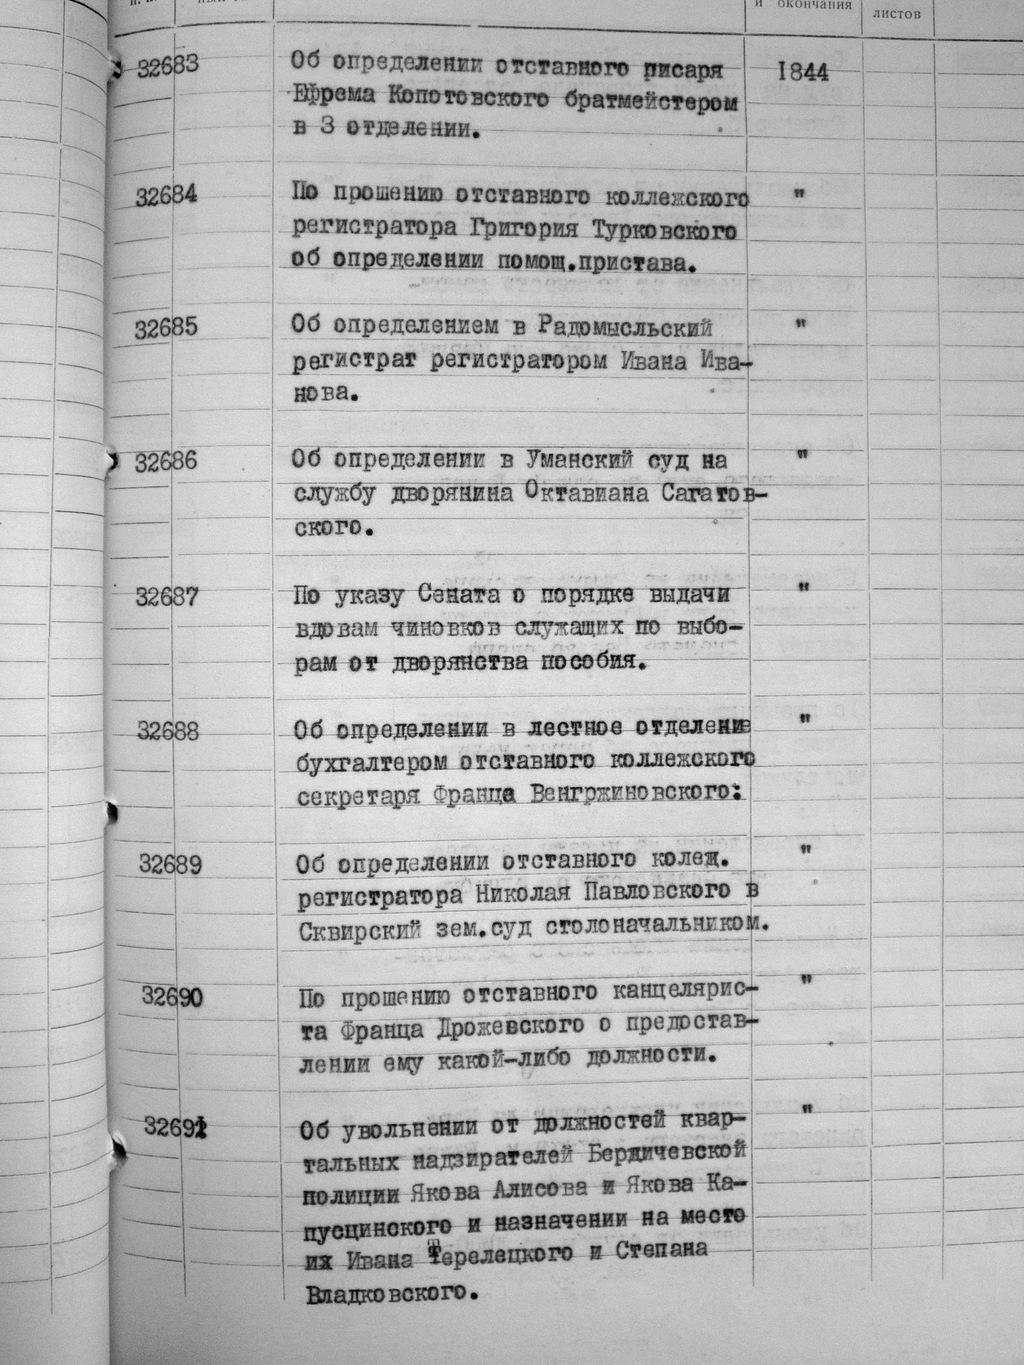 и окончания
листов
32683 Об определении отставного писаря 1844
Ефрема Копотовского братмейстером
в 3 отделении.
32684 По прошению отставного коллежского "
регистратора Григория Турковского
об определении помощ.пристава.
32685 Об определением в Радомысльский "
регистрат регистратором Ивана Ива-
нова.
32686 Об определении в Уманский суд на "
службу дворянина Октавиана Сагатов-
ского.
32687 По указу Сената о порядке выдачи "
вдовам чиновков служащих по выбо-
рам от дворянства пособия.
32688 Об определении в лестное отделение "
бухгалтером отставного коллежского
секретаря Франца Венгржиновского.
32689 Об определении отставного колеж. "
регистратора Николая Павловского в
Сквирский зем.суд столоначальником.
32690 По прошению отставного канцелярис- "
та Франца Дрожевского о предостав-
лении ему какой-либо должности.
32691 Об увольнении от должностей квар- "
тальных надзирателей Бердичевской
полиции Якова Алисова и Якова Ка-
пусцинского и назначении на место
их Ивана Терелецкого и Степана
Владковского.